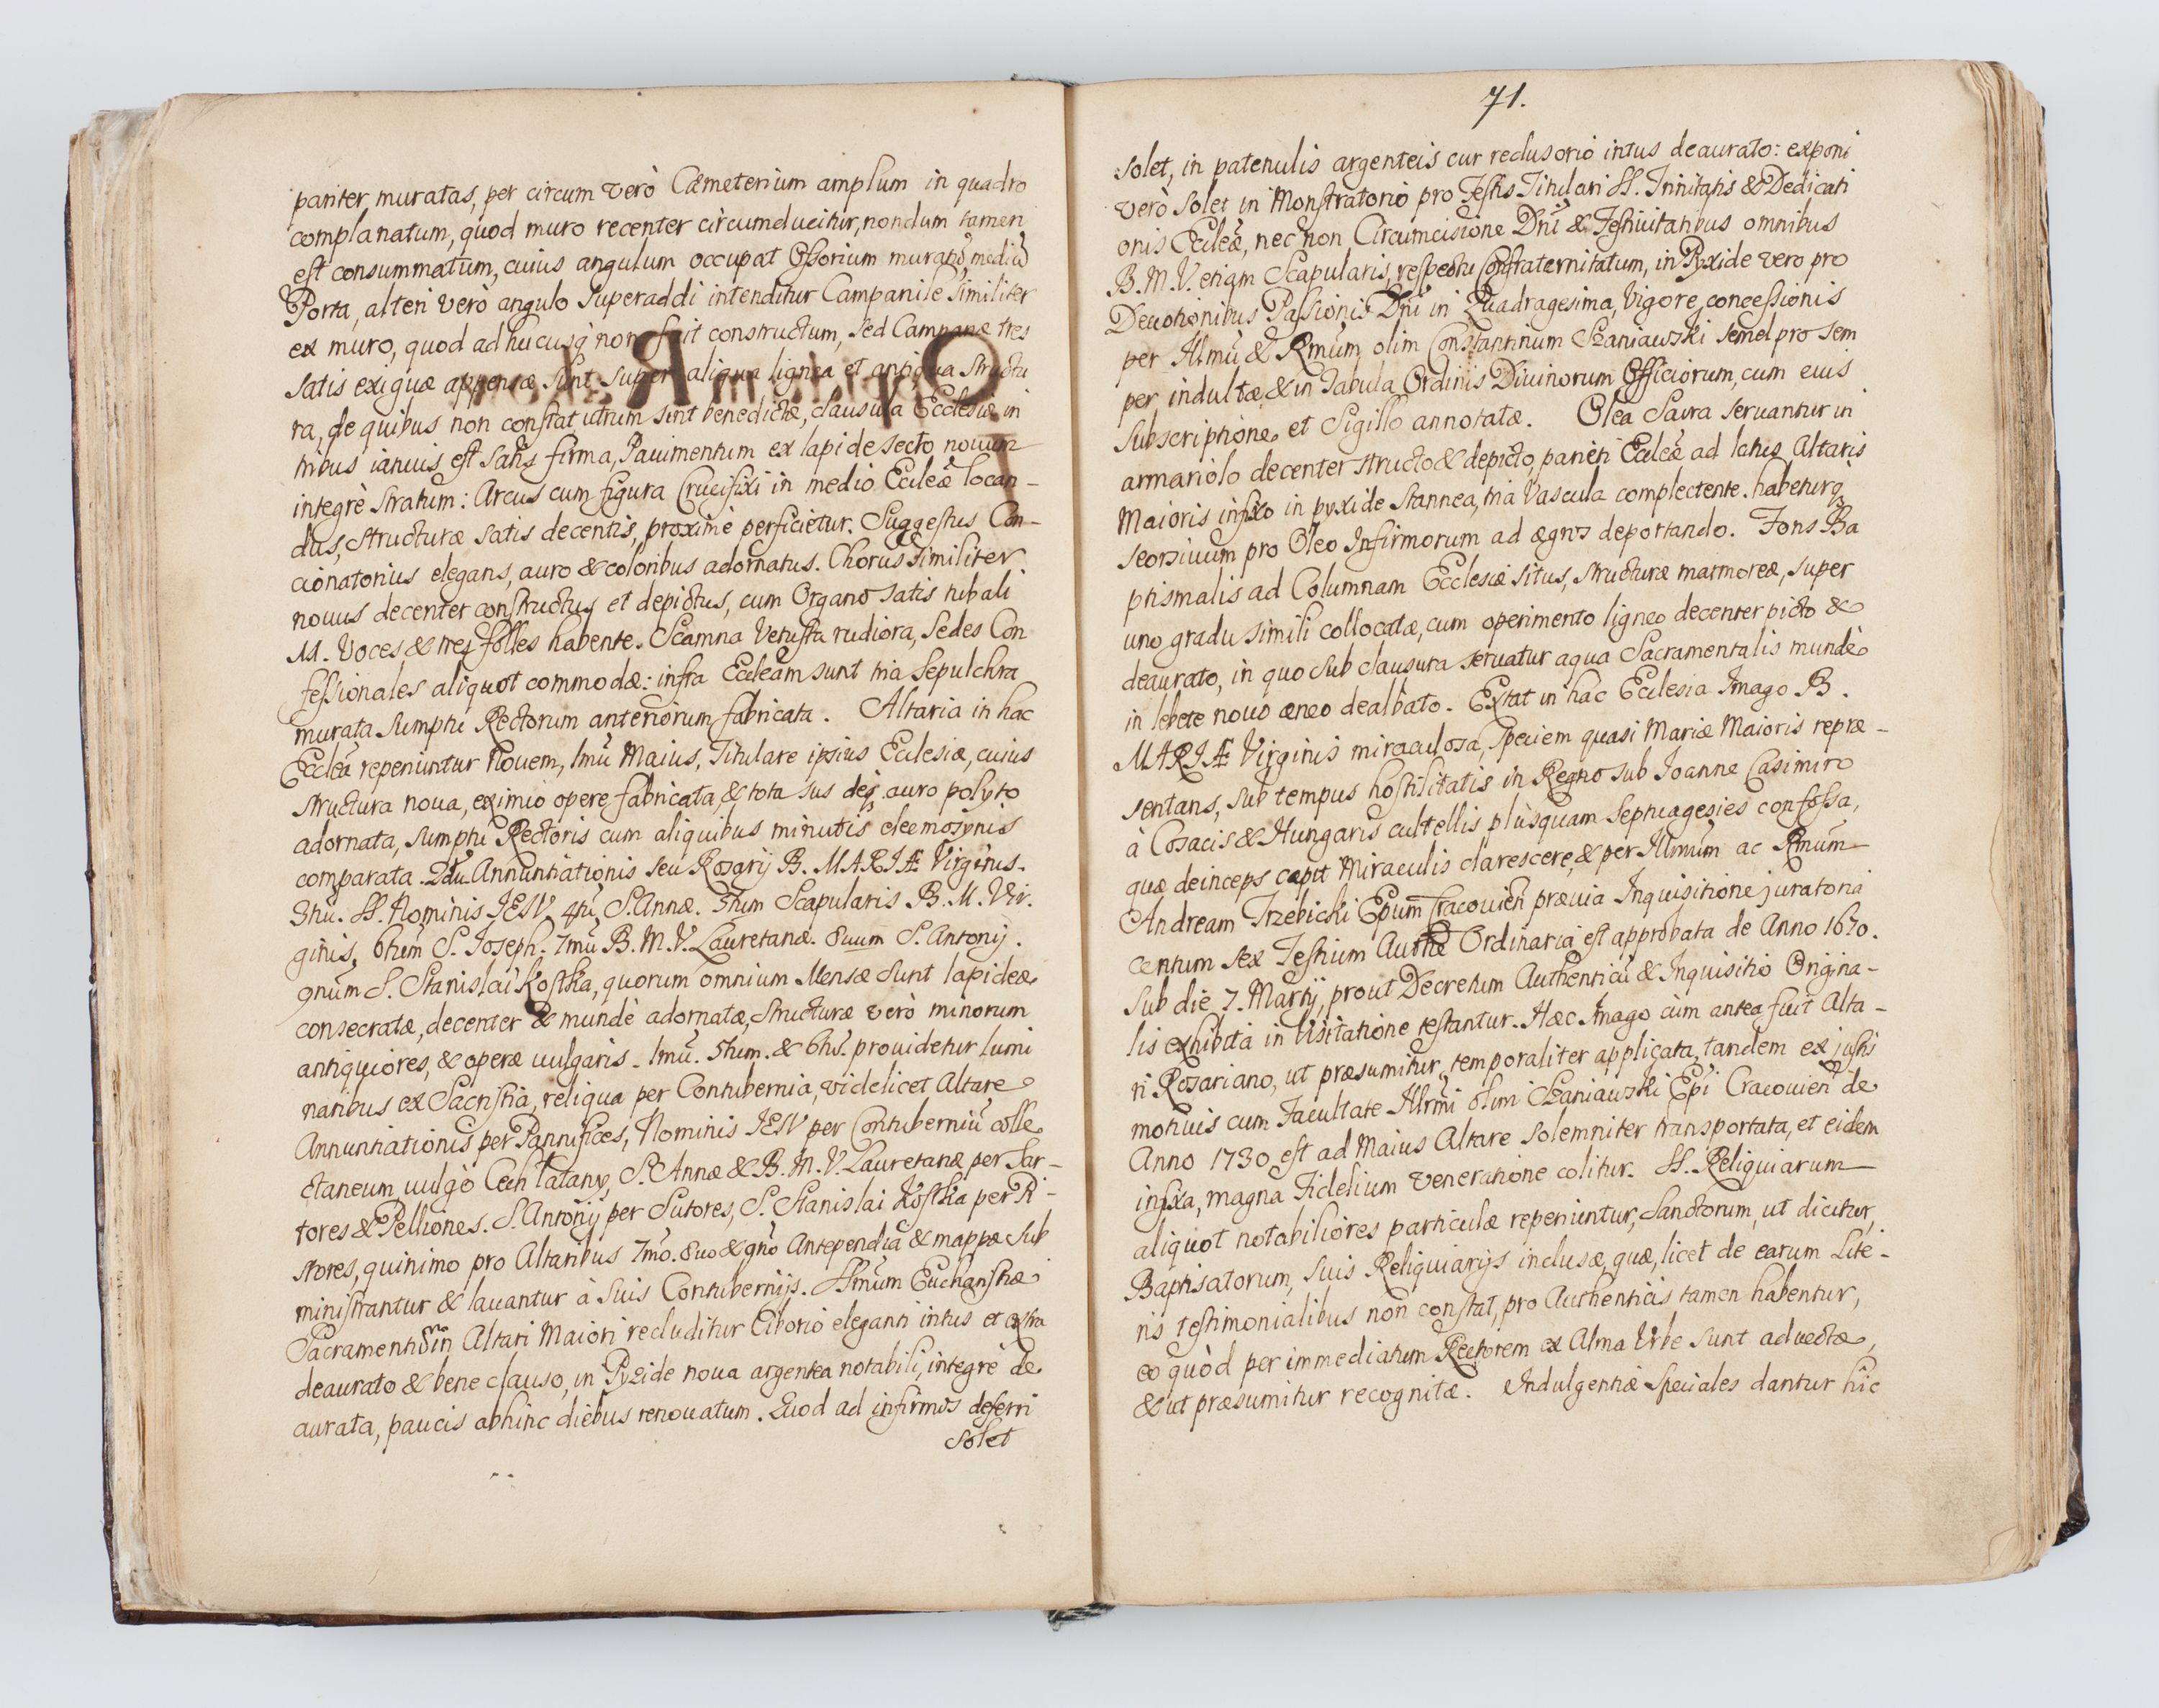 pariter muratas, per circum verò Cæmeterium amplum in quadro
complanatum, quod muro recenter circumducitur, nondum tamen
est consummatum, cuius angulum occupat Ossorium muratũ, mediũ
Porta, alteri verò angulo superaddi intenditur Campanile similiter
ex muro, quod adhucusq non fuit constructum, sed Campanæ tres
satis exiguæ appensæ sunt super aliqua lignea et antiqua structu
ra, de quibus non constat utrum sint benedictæ, clausura Ecclesiæ in
tribus ianuis est satis firma, Pauimentum ex lapide secto nouum
integrè stratum: Arcus cum figura Crucifixi in medio Eccleæ locan-
dus, structuræ satis decentis, proximè perficietur. Suggestus Con-
cionatorius elegans, auro & coloribus adornatus. Chorus similiter
nouus decenter constructus et depictus, cum Organo satis tubali
14. Voces & tres folles habente. Scamna Vetusta rudiora, Sedes Con
fessionales aliquot commodæ: infra Eccleam sunt tria Sepulchra
murata sumptu Rectorum anteriorum fabricata. Altaria in hac
Ecclea reperiuntur Nouem, 1mũ Maius, Titulare ipsius Ecclesiæ, cuius
structura noua, eximio opere fabricata, & tota sus deq auro polyto
adornata, sumptu Rectoris cum aliquibus minutis eleemosynis
comparata. 2dũ Annuntiationis seu Rosarij B. MARIÆ Virginis.
3tiũ. SS. Nominis JESV, 4tũ S. Annæ. 5tum Scapularis B. M. Vir.
ginis, 6tum S. Joseph. 7mũ B. M. V. Lauretanæ. 8uum S. Antonij.
9num S. Stanislai Kostka, quorum omnium Mensæ sunt lapideæ
consecratæ, decenter & mundè adornatæ, structuræ verò minorum
antiquiores, & operæ uulgaris. 1mũ. 5tum. & 6tũ. prouidetur lumi
naribus ex Sacristia, reliqua per Contubernia, videlicet Altare
Annuntiationis per Pannifices, Nominis JESV per Contuberniũ colle
ctaneum uulgò Cech Łatany, S. Annæ & B. M. V. Lauretanæ per Sar-
tores & Pelliones. S. Antonij per Sutores, S. Stanislai Kostka per Pi-
stores, quinimo pro Altaribus 7mo. 8uo & 9no Antependia & mappæ sub
ministrantur & lauantur à suis Contubernijs. SSmum Eucharistiæ
Sacramentũ in Altari Maiori recluditur Ciborio eleganti intus et extra
deaurato & bene clauso, in Pyxide noua argentea notabili, integrè de
aurata, paucis abhinc diebus renouatum. Quod ad infirmos deferri
solet
71.
solet, in patenulis argenteis cur reclusorio intus deaurato: exponi
verò solet in Monstratorio pro Festis Titulari SS. Trinitatis & Dedicati
onis Eccleæ, nec non Circumcisione Dnĩ & Festiuitatibus omnibus
B. M. V. etiam Scapularis, respectu Confraternitatum, in Pyxide vero pro
Deuotionibus Passionis Dnĩ in Quadragesima, Vigore concessionis
per Illmũ & Rmũm olim Constantinum Szaniawski semel pro sem
per indultæ, & in Tabula Ordinis Diuinorum Officiorum, cum eius
subscriptione et Sigillo annotatæ. Olea Sacra seruantur in
armariolo decenter structo & depicto, parieti Eccleæ ad latus Altaris
Maioris infixo in pyxide stannea, tria Vascula complectente. habeturq
seorsiuum pro Oleo Infirmorum ad ægros deportando. Fons Ba
ptismalis ad Columnam Ecclesiæ situs, structuræ marmoreæ, super
uno gradu simili collocatæ, cum operimento ligneo decenter picto &
deaurato, in quo sub clausura seruatur aqua Sacramentalis mundè
in lebete nouo æneo dealbato. Extat in hac Ecclesia Imago B.
MARIÆ Virginis miraculosa, speciem quasi Mariæ Maioris repræ-
sentans, sub tempus hostilitatis in Regno sub Joanne Casimiro
à Cosacis & Hungaris cultellis plùsquam septuagesies confossa,
quæ deinceps cæpit Miraculis clarescere, & per Illmũm ac Rmũm
Andream Trzebicki Epum Cracouieñ præuia Inquisitione juratoria
centum sex Testium Authe Ordinaria est approbata de Anno 1670.
sub die 7. Martij, prout Decretum Authenticũ & Inquisitio Origina-
lis exhibita in Visitatione testantur. Hæc Imago cùm antea fuit Alta-
ri Rosariano, ut præsumitur, temporaliter applicata, tandem ex justis
motiuis cum Facultate Illrmi olim Szaniawski Epi Cracouieñ de
Anno 1730 est ad Maius Altare solemniter transportata, et eidem
infixa, magna Fidelium veneratione colitur. SS. Reliquiarum
aliquot notabiliores particulæ reperiuntur, Sanctorum, ut dicitur,
Baptisatorum, suis Reliquiarijs inclusæ, quæ, licet de earum Lite-
ris testimonialibus non constat, pro Authenticis tamen habentur,
eo quòd per immediatum Rectorem ex Alma Vrbe sunt aduectæ,
& ut præsumitur recognitæ. Indulgentiæ Speciales dantur hic